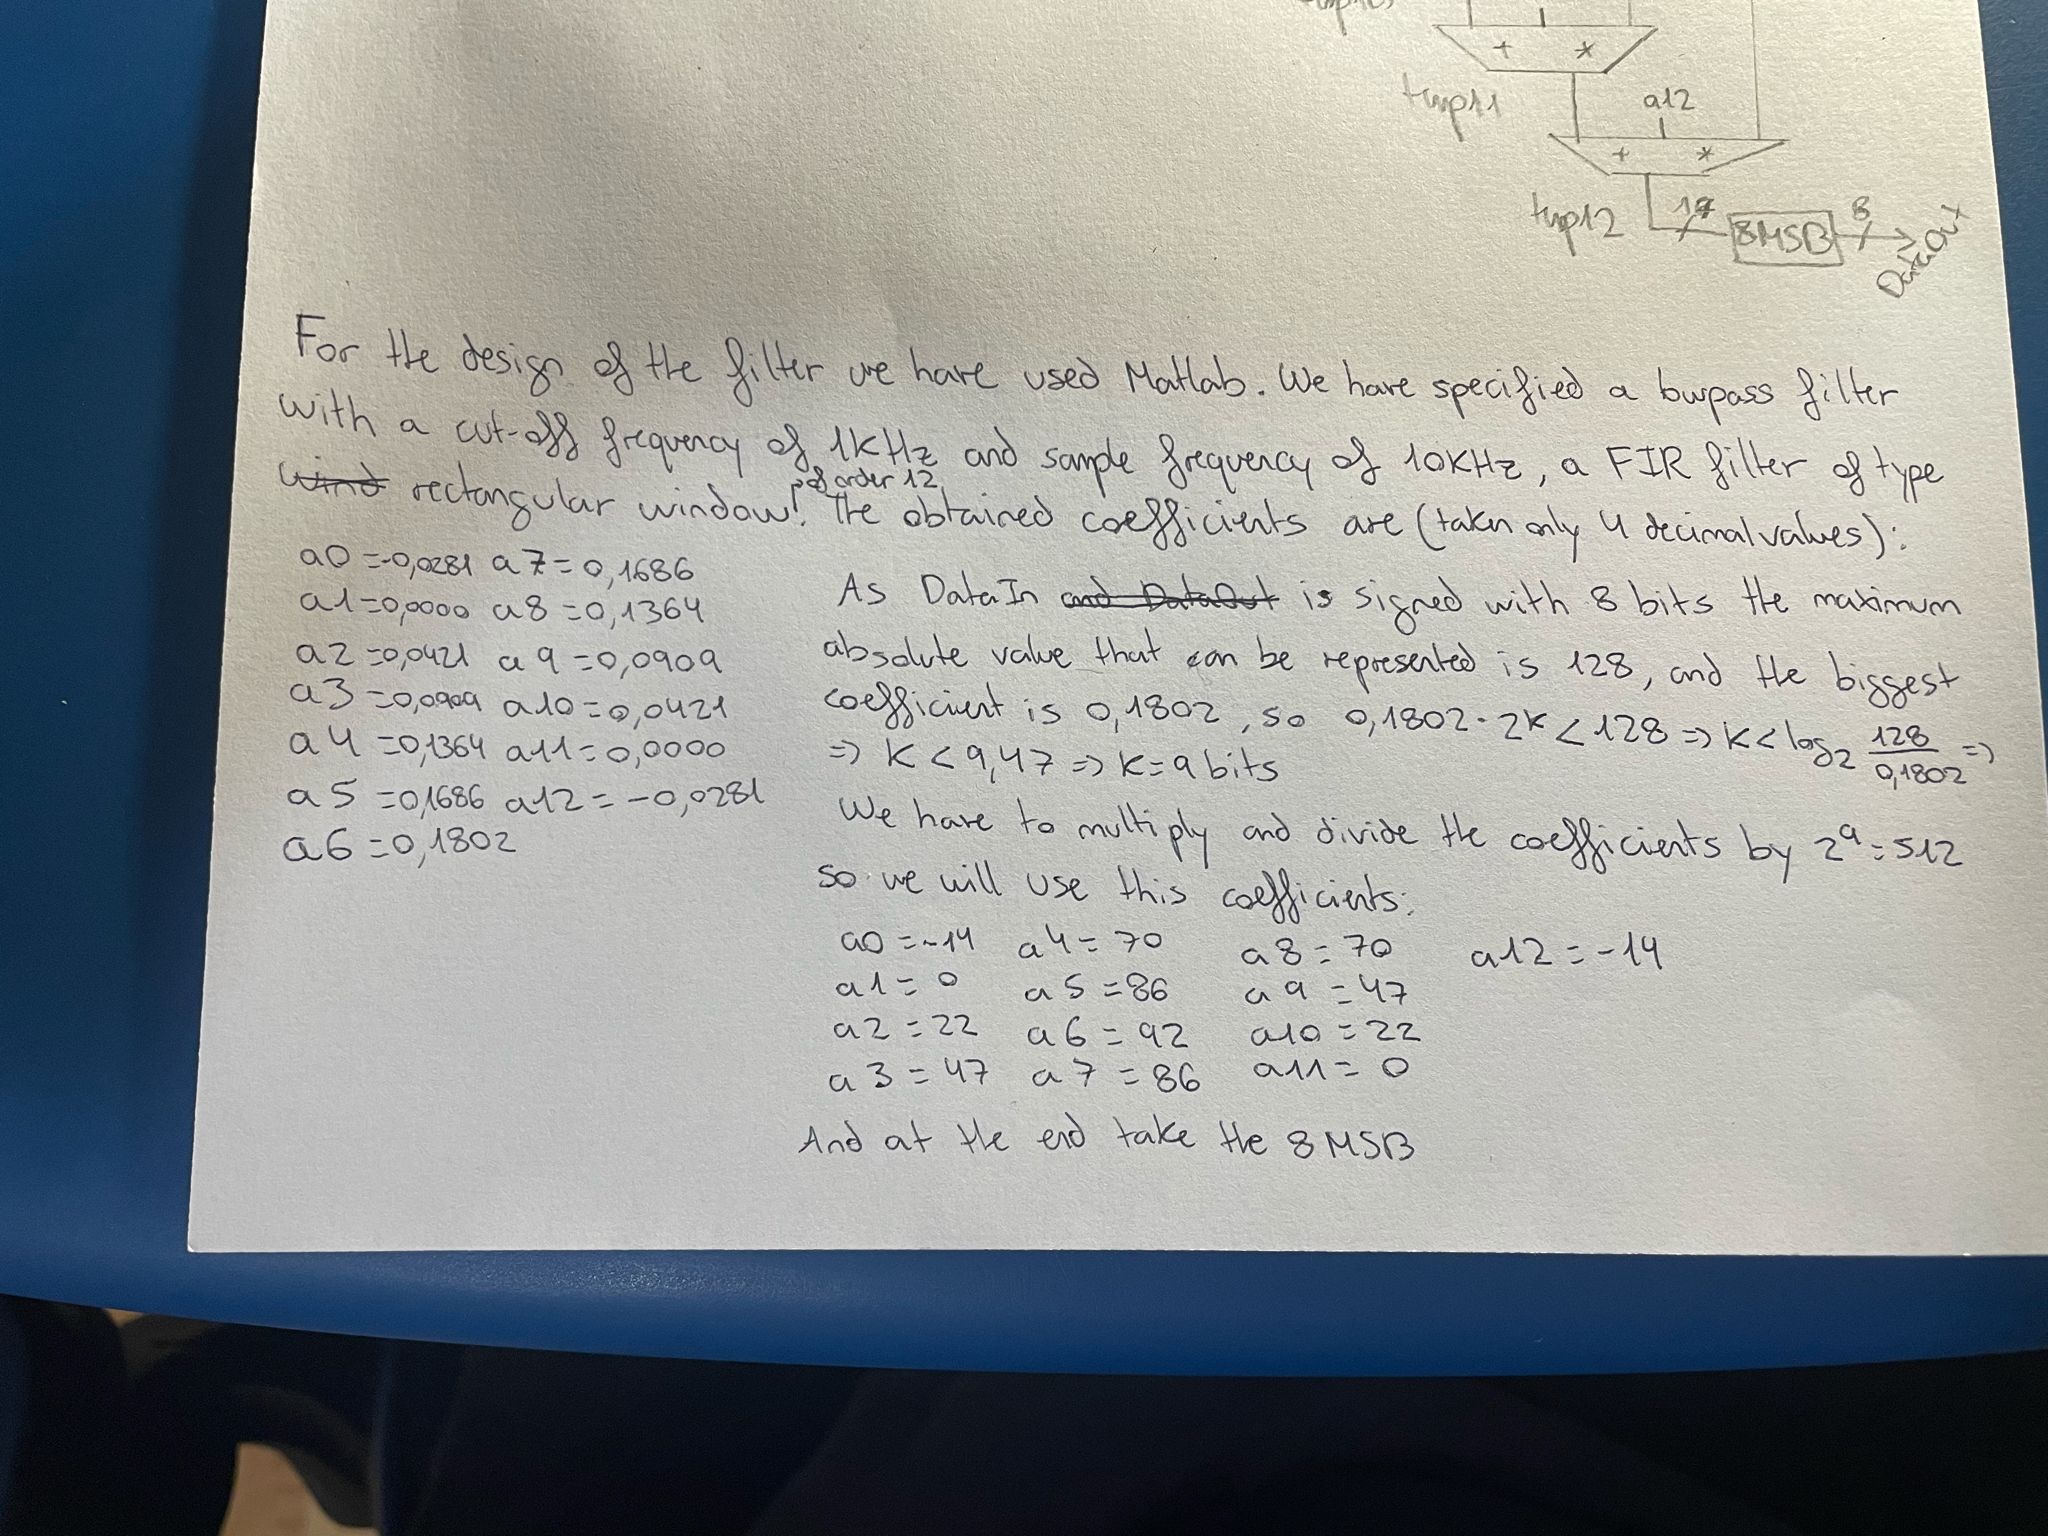 + *
tmp11
a12
+ *
tmp12
17
8MSB
8
DataOut
For the design of the filter we have used Matlab. We have specified a lowpass filter
with a cut-off frequency of 1KHz and sample frequency of 10KHz, a FIR filter of type
wind rectangular window, of order 12. The obtained coefficients are (taken only 4 decimal values):
a0 =-0,0281 a7=0,1686
a1=0,0000 a8=0,1364
a2=0,0421 a9=0,0909
a3=0,0909 a10=0,0421
a4=0,1364 a11=0,0000
a5=0,1686 a12=-0,0281
a6=0,1802
As DataIn and DataOut is signed with 8 bits the maximum
absolute value that can be represented is 128, and the biggest
coefficient is 0,1802, so 0,1802·2^K<128 => K<log2 128/0,1802 =>
=> K<9,47 => K=9 bits
We have to multiply and divide the coefficients by 2^9=512
so we will use this coefficients:
a0=-14 a4=70 a8=70 a12=-14
a1=0 a5=86 a9=47
a2=22 a6=92 a10=22
a3=47 a7=86 a11=0
And at the end take the 8MSB